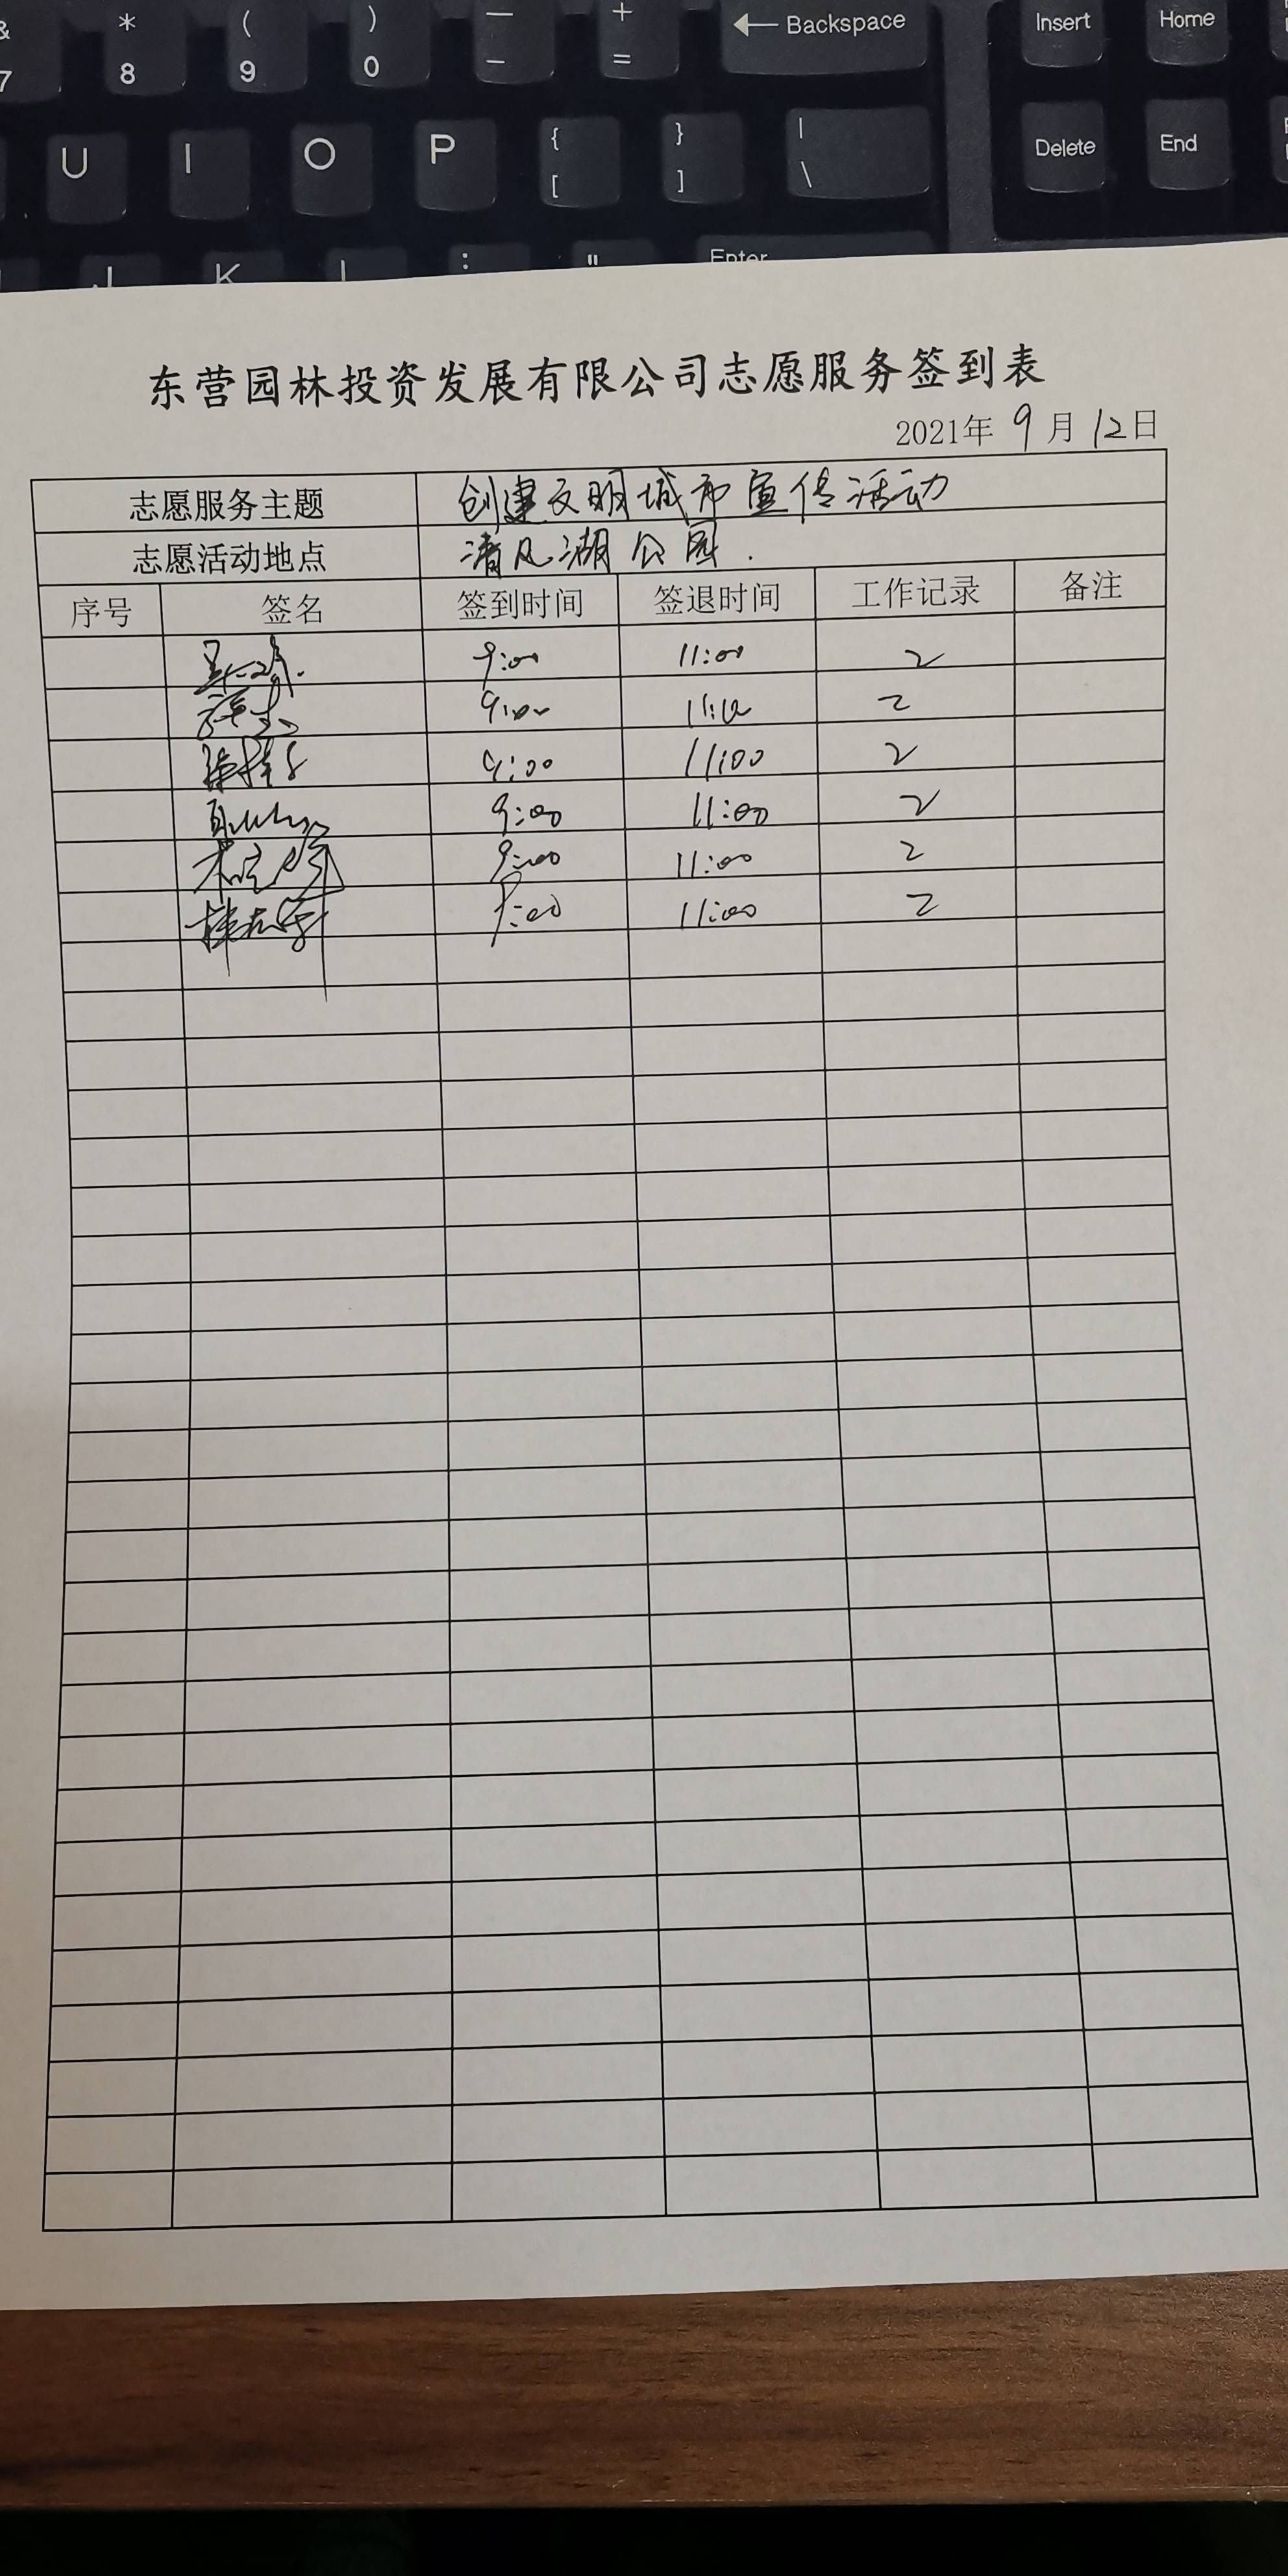 & * ( ) — +
7 8 9 0 - = Backspace Insert Home
U I O P { [ } ] | \ Delete End
J K L : " Enter
东营园林投资发展有限公司志愿服务签到表
2021年 9 月 12日
志愿服务主题 创建文明城市宣传活动
志愿活动地点 清风湖公园.
序号 签名 签到时间 签退时间 工作记录 备注
9:00 11:00 2
9:00 11:00 2
9:00 11:00 2
9:00 11:00 2
9:00 11:00 2
9:00 11:00 2